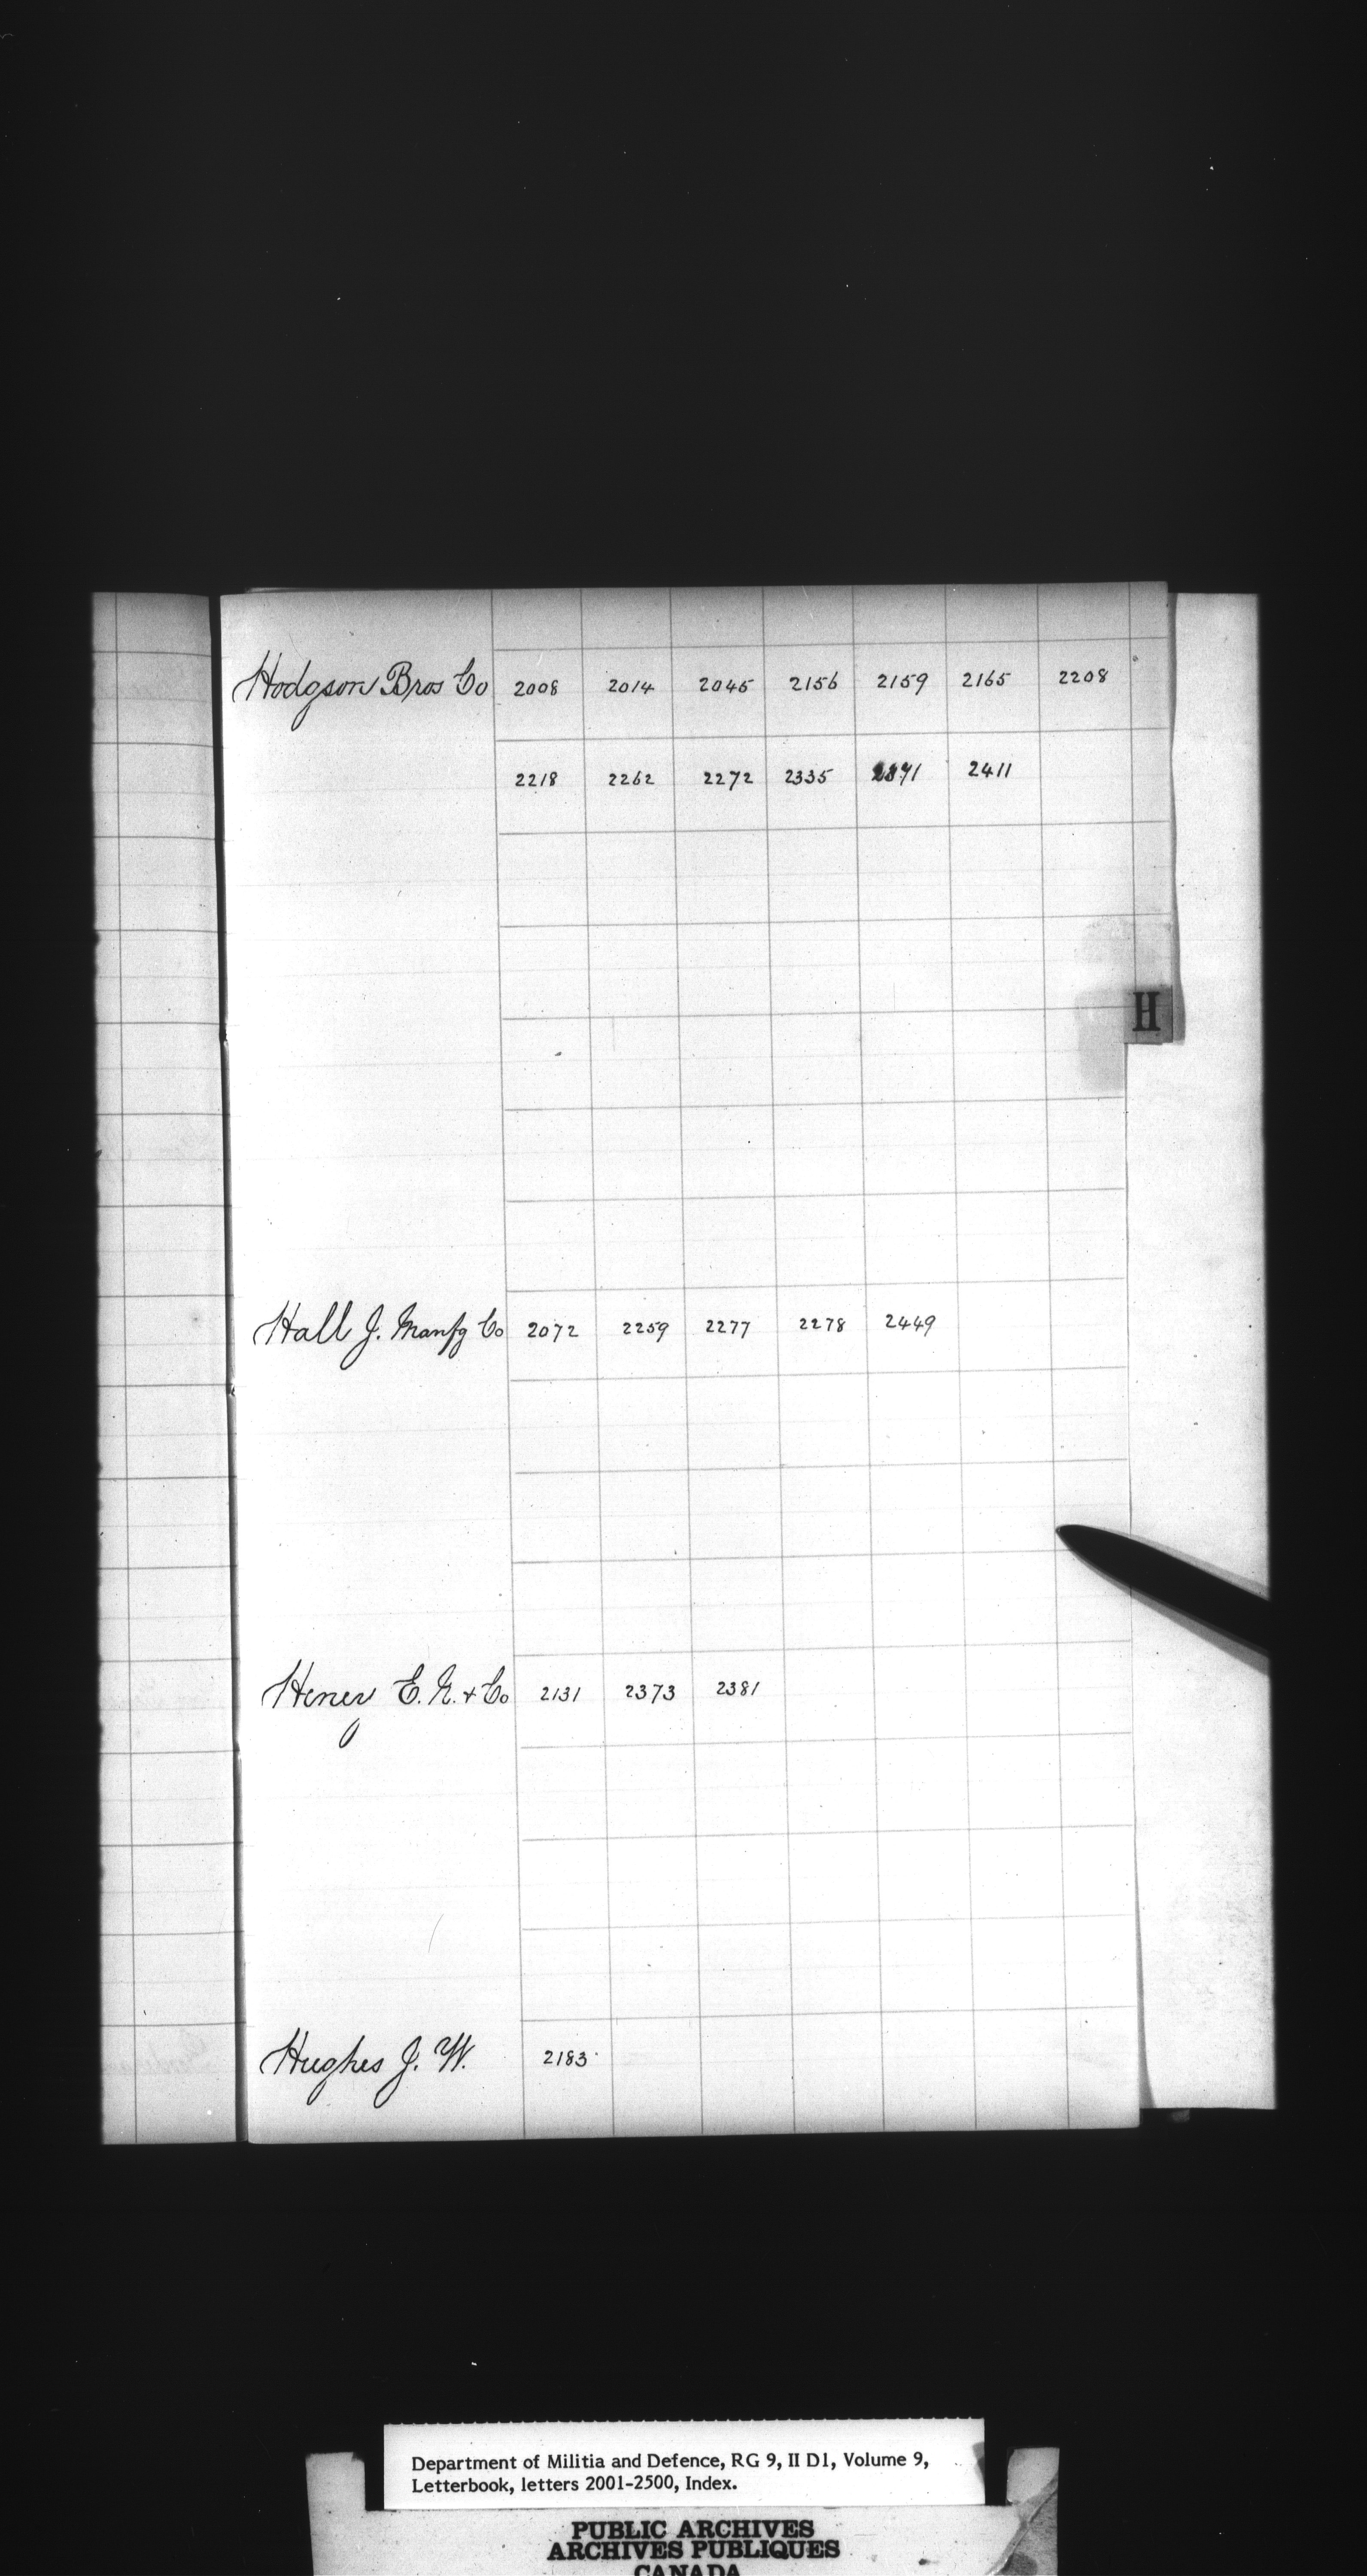 Hodgson Bros Co 2008 2014 2045 2156 2159 2165 2208
2218 2262 2272 2335 2371 2411
H
Hall J. Manfg Co 2072 2259 2277 2278 2449
Heney E. N. & Co 2131 2373 2381
Hughes J. W. 2183
Department of Militia and Defence, RG 9, II D1, Volume 9,
Letterbook, letters 2001-2500, Index.
PUBLIC ARCHIVES
ARCHIVES PUBLIQUES
CANADA